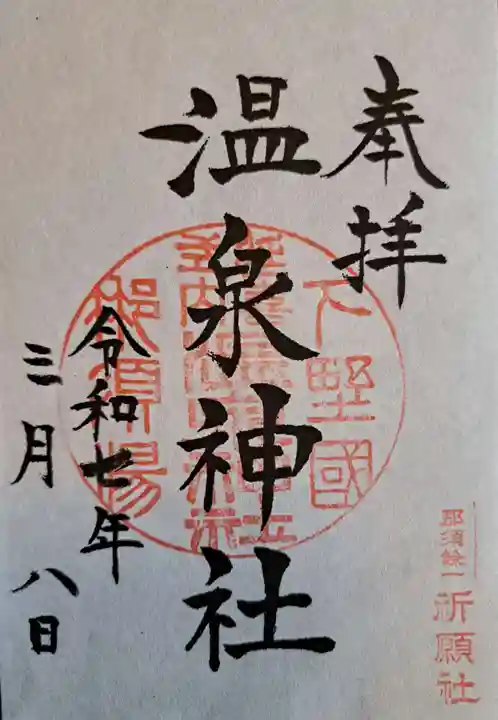 奉拝
温泉神社
令和七年
三月八日
下野國
那須湯
那須餘一
祈願社